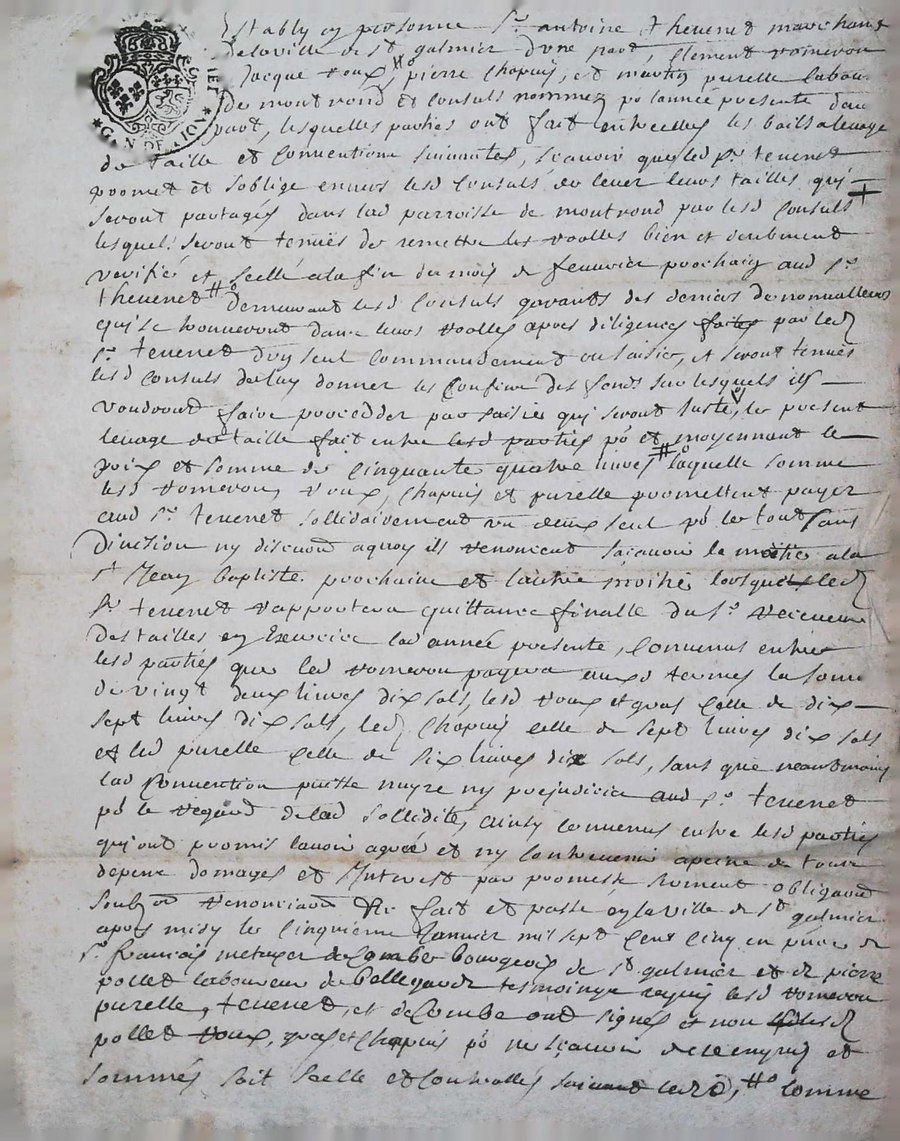 GEN DE LION
Estably en personne Sr. antoine Thevenet marchand
de la ville de St galmier d'une part, Clement vomeron
Jacque roux, pierre Chapuis, et martin purelle labou
de montrond et Consuls nommez po lannée presente dau
part, lesquelles parties ont fait entrelles les bails a levage
de taille et Conventions suivantes, scavoir que led sr. tevenet
promet et soblige envers lesd Consuls de lever leurs tailles, qui
seront partagés dans lad parroisse de montrond par lesd Consuls
lesquels seront tenües de remettre les roolles bien et deubment
verifié et scellé a la fin du mois de fevrier prochain aud sr.
thevenet demeurant lesd Consuls garants des deniers de nonvalleurs
qui se trouveront dans leurs roolles apres diligences faites par led
sr. tevenet d'un seul commandement ou saisies, et seront tenües
lesd Consuls de luy donner les Confins des fonds sur lesquels ils
voudront faire procedder par saisies qui seront juste, le present
levage de taille fait entre lesd parties po et moyennant le
prix et somme de Cinquante quatre livres laquelle somme
lesd vomeron, roux, Chapuis et purelle promettent payer
aud sr. tevenet sollidairement un deux seul po le tout sans
division ny discution aquoy ils renoncent scavoir la moitié a la
st Jean baptiste prochaine et lautre moitié lorsque led
sr. tevenet rapportera quittance finalle du sr. receveur
des tailles en Exercice lad année presente, Convenus entre
lesd parties que led vomeron payera auxd termes la som
de vingt deux livres dix sols, lesd roux et quas Celle de dix
sept livres dix sols, led Chapuis celle de sept livres dix sols
et led purelle Celle de six livres dix sols, sans que neantmoins
lad Convention puisse nuyre ny prejudicier aud sr. tevenet
po le regard de lad sollidité, ainsy Convenus entre lesd parties
qui ont promis lavoir agreé et ny Contrevenir apeine de tous
depens domages et Interest par promesse serment obligaon
soubzon renonciaon &c fait et passé en la ville de St galmier
apres midy le cinquieme Janvier mil sept Cent Cinq en pnce de
sr. francois metayer de Combe bourgeois de St galmier et de pierre
pollet laboureur de bellegarde tesmoings requis lesd vomeron
purelle, tevenet, et de Combe ont signés et non lesd
pollet roux, quas et Chapuis po ne scavoir de ce enquis et
sommés soit scellé et Controllés suivant led, comme